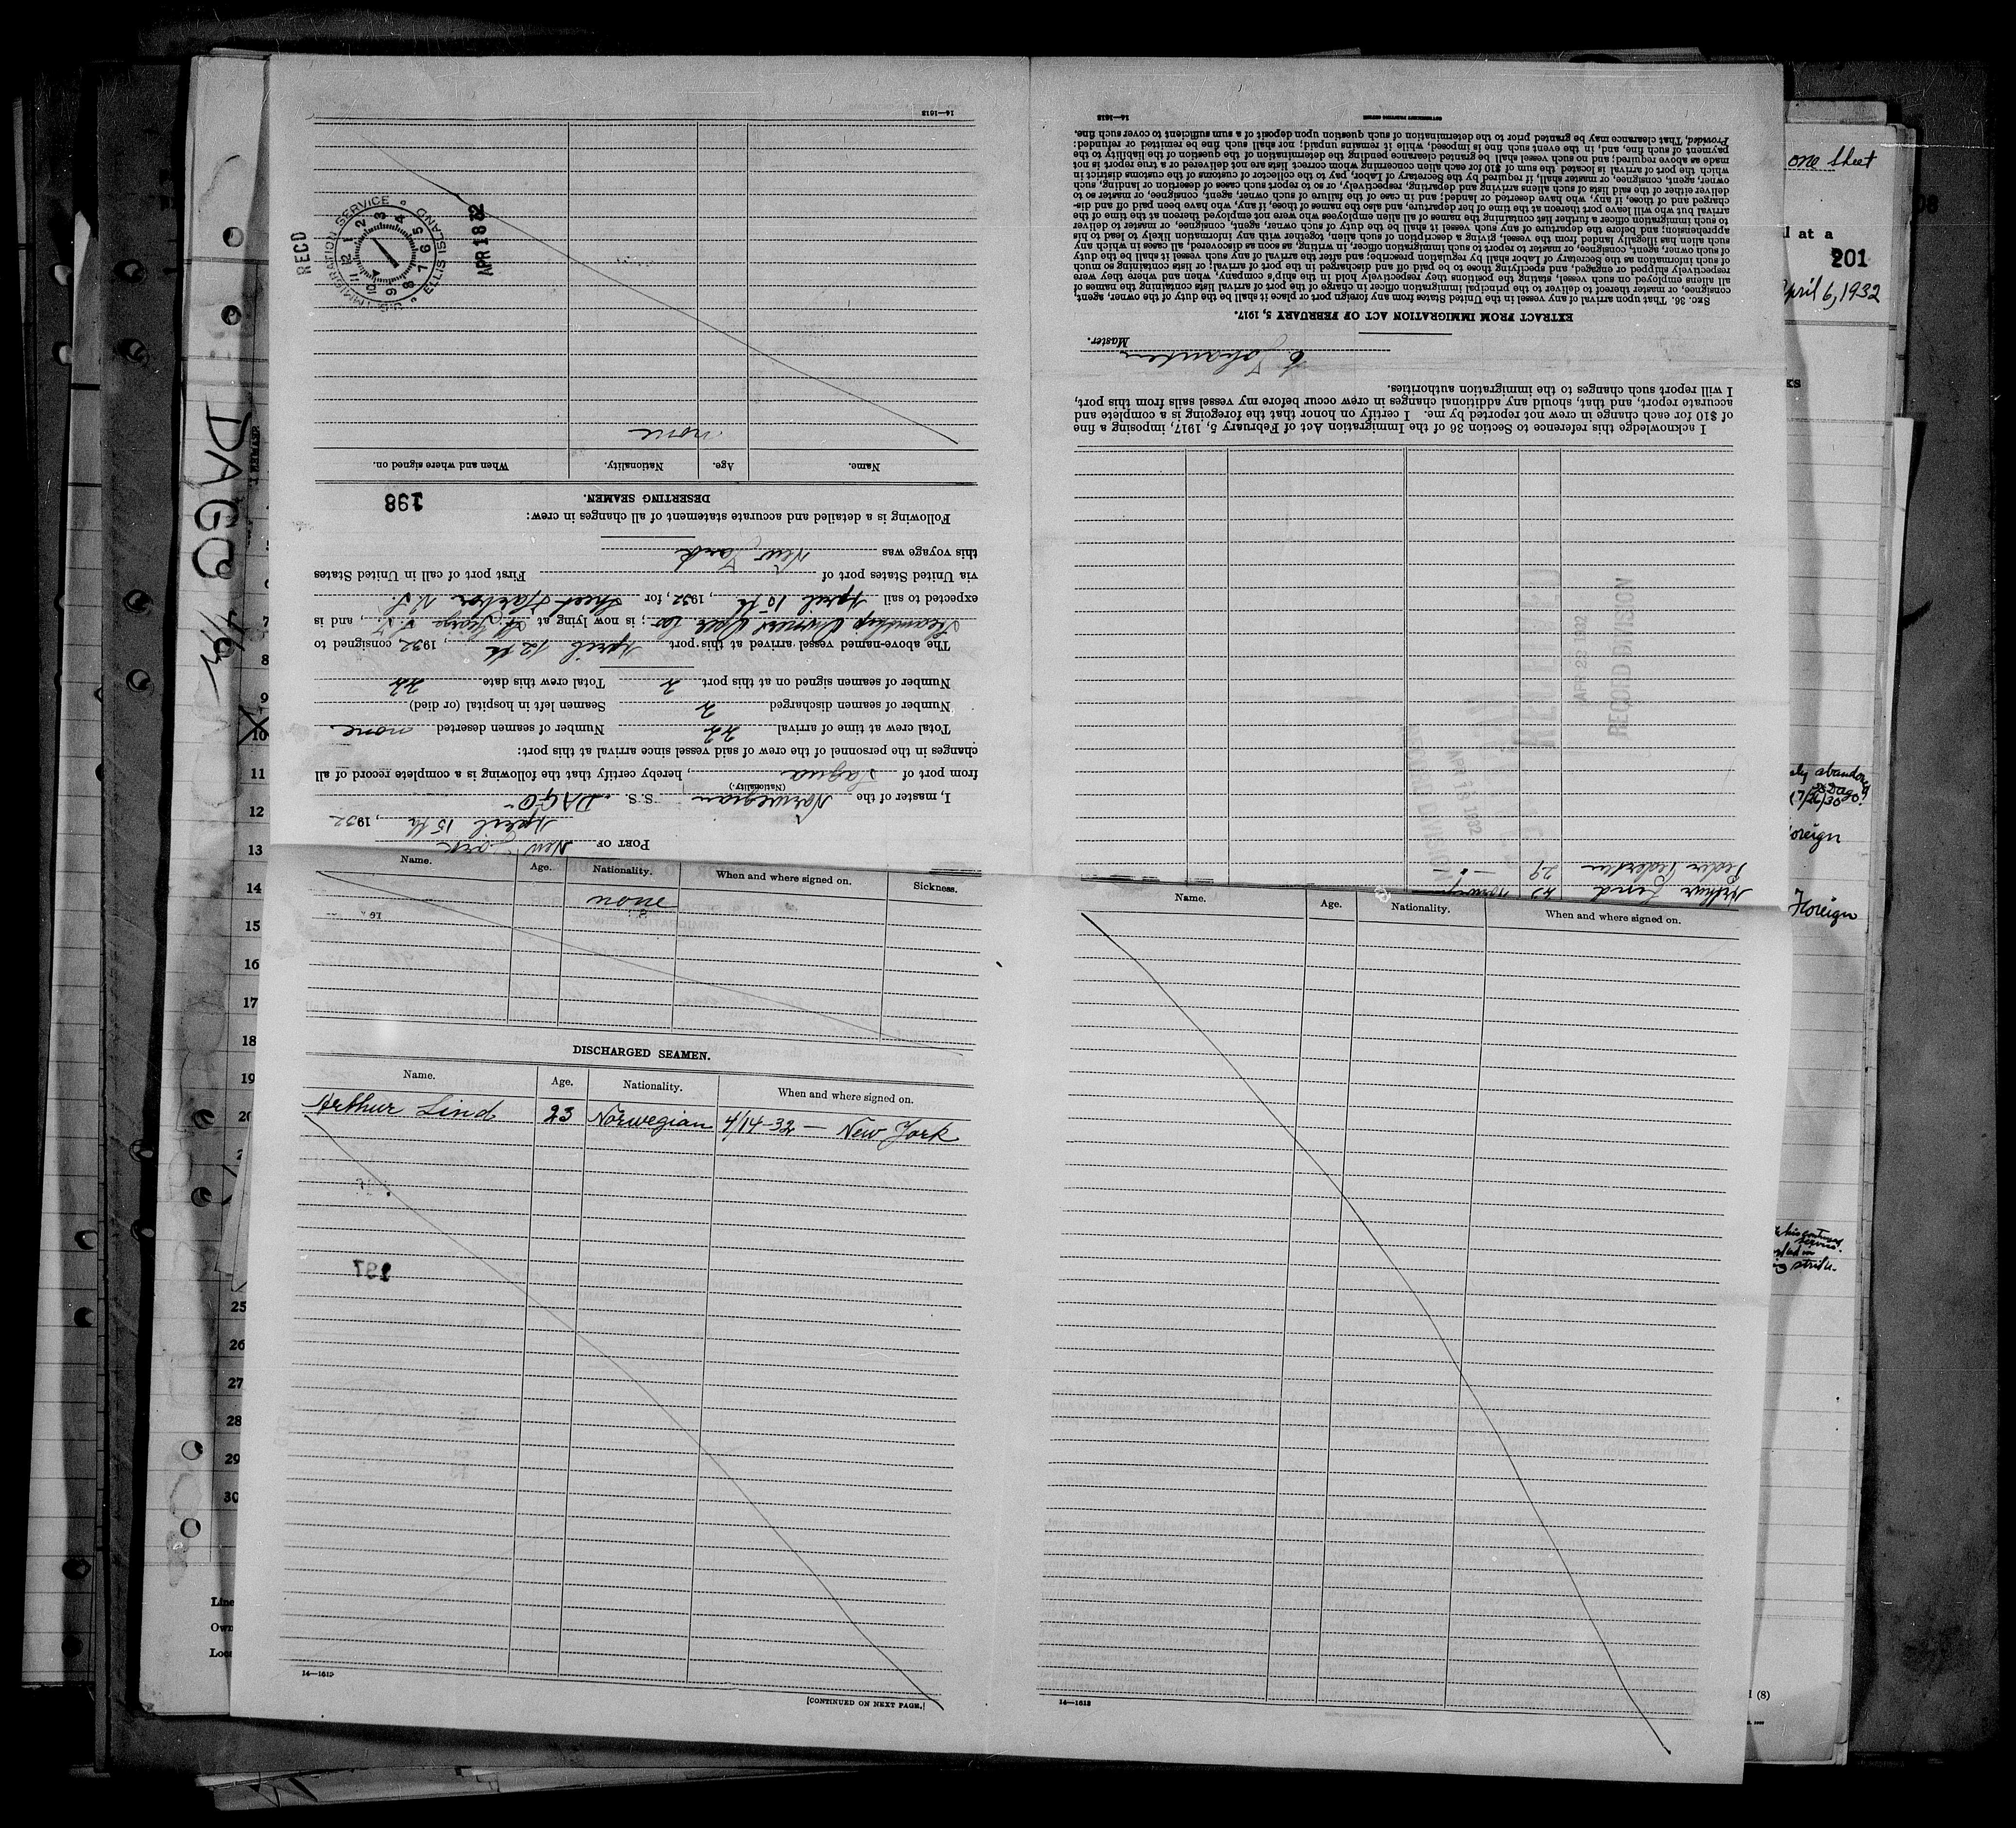 PORT OF New York
April 15th, 1932
I, master of the Norwegian S. S. "DAGO"
(Nationality)
from port of Sagua, hereby certify that the following is a complete record of all
changes in the personnel of the crew of said vessel since arrival at this port:
Total crew at time of arrival 22 Number of seamen deserted none
Number of seamen discharged 2 Seamen left in hospital (or died)
Number of seamen signed on at this port 2 Total crew this date 22
The above-named vessel arrived at this port April 12th, 1932 consigned to
; is now lying at St George, and is
expected to sail April 15th, 1932, for Sheet Harbor N.S.
via United States port of First port of call in United States
this voyage was New York
Following is a detailed and accurate statement of all changes in crew:
DESERTING SEAMEN.
198
Name. Age. Nationality. When and where signed on.
none
REC'D
IMMIGRATION SERVICE
ELLIS ISLAND
1 2 3 4 5 6 7 8 9 10 11 12
APR 18 32
14—1613
Arthur Lind Norwegian
Peder Pedersen 29 — " —
RECORD DIVISION
APR 18 1932
RECEIVED
APR 22 1932
RECORD DIVISION
I acknowledge this reference to Section 36 of the Immigration Act of February 5, 1917, imposing a fine
of $10 for each change in crew not reported by me. I certify on honor that the foregoing is a complete and
accurate report, and that, should any additional changes in crew occur before my vessel sails from this port,
I will report such changes to the immigration authorities.
Johansen
Master.
EXTRACT FROM IMMIGRATION ACT OF FEBRUARY 5, 1917.
SEC. 36. That upon arrival of any vessel in the United States from any foreign port or place it shall be the duty of the owner, agent,
consignee, or master thereof to deliver to the principal immigration officer in charge of the port of arrival lists containing the names of
all aliens employed on such vessel, stating the positions they respectively hold in the ship's company, when and where they were
respectively shipped or engaged, and specifying those to be paid off and discharged in the port of arrival; or lists containing so much
of such information as the Secretary of Labor shall by regulation prescribe; and after the arrival of any such vessel it shall be the duty
of such owner, agent, consignee, or master to report to such immigration officer, in writing, as soon as discovered, all cases in which any
such alien has illegally landed from the vessel, giving a description of such alien, together with any information likely to lead to his
apprehension; and before the departure of any such vessel it shall be the duty of such owner, agent, consignee, or master to deliver
to such immigration officer a further list containing the names of all alien employees who were not employed thereon at the time of the
arrival but who will leave port thereon at the time of her departure, and also the names of those, if any, who have been paid off and dis-
charged and of those, if any, who have deserted or landed; and in case of the failure of such owner, agent, consignee, or master so to
deliver either of the said lists of such aliens arriving and departing, respectively, or so to report such cases of desertion or landing, such
owner, agent, consignee, or master shall, if required by the Secretary of Labor, pay to the collector of customs of the customs district in
which the port of arrival is located the sum of $10 for each alien concerning whom correct lists are not delivered or a true report is not
made as above required; and no such vessel shall be granted clearance pending the determination of the question of the liability to the
payment of such fine, and, in the event such fine is imposed, while it remains unpaid; nor shall such fine be remitted or refunded:
Provided, That clearance may be granted prior to the determination of such question upon deposit of a sum sufficient to cover such fine.
14—1613 GOVERNMENT PRINTING OFFICE
Name. Age. Nationality. When and where signed on. Sickness.
none
DISCHARGED SEAMEN.
Name. Age. Nationality. When and where signed on.
Arthur Lind 23 Norwegian 4/14-32 — New York
197
14—1613
[CONTINUED ON NEXT PAGE.]
Name. Age. Nationality. When and where signed on.
14—1613
DAGO
8
9
10
11
12
13
14
15
16
17
18
19
20
25
26
27
28
29
30
Line
Own
Loca
one sheet
l at a
201
April 6, 1932
KS
abandon
Foreign
Foreign
(8)